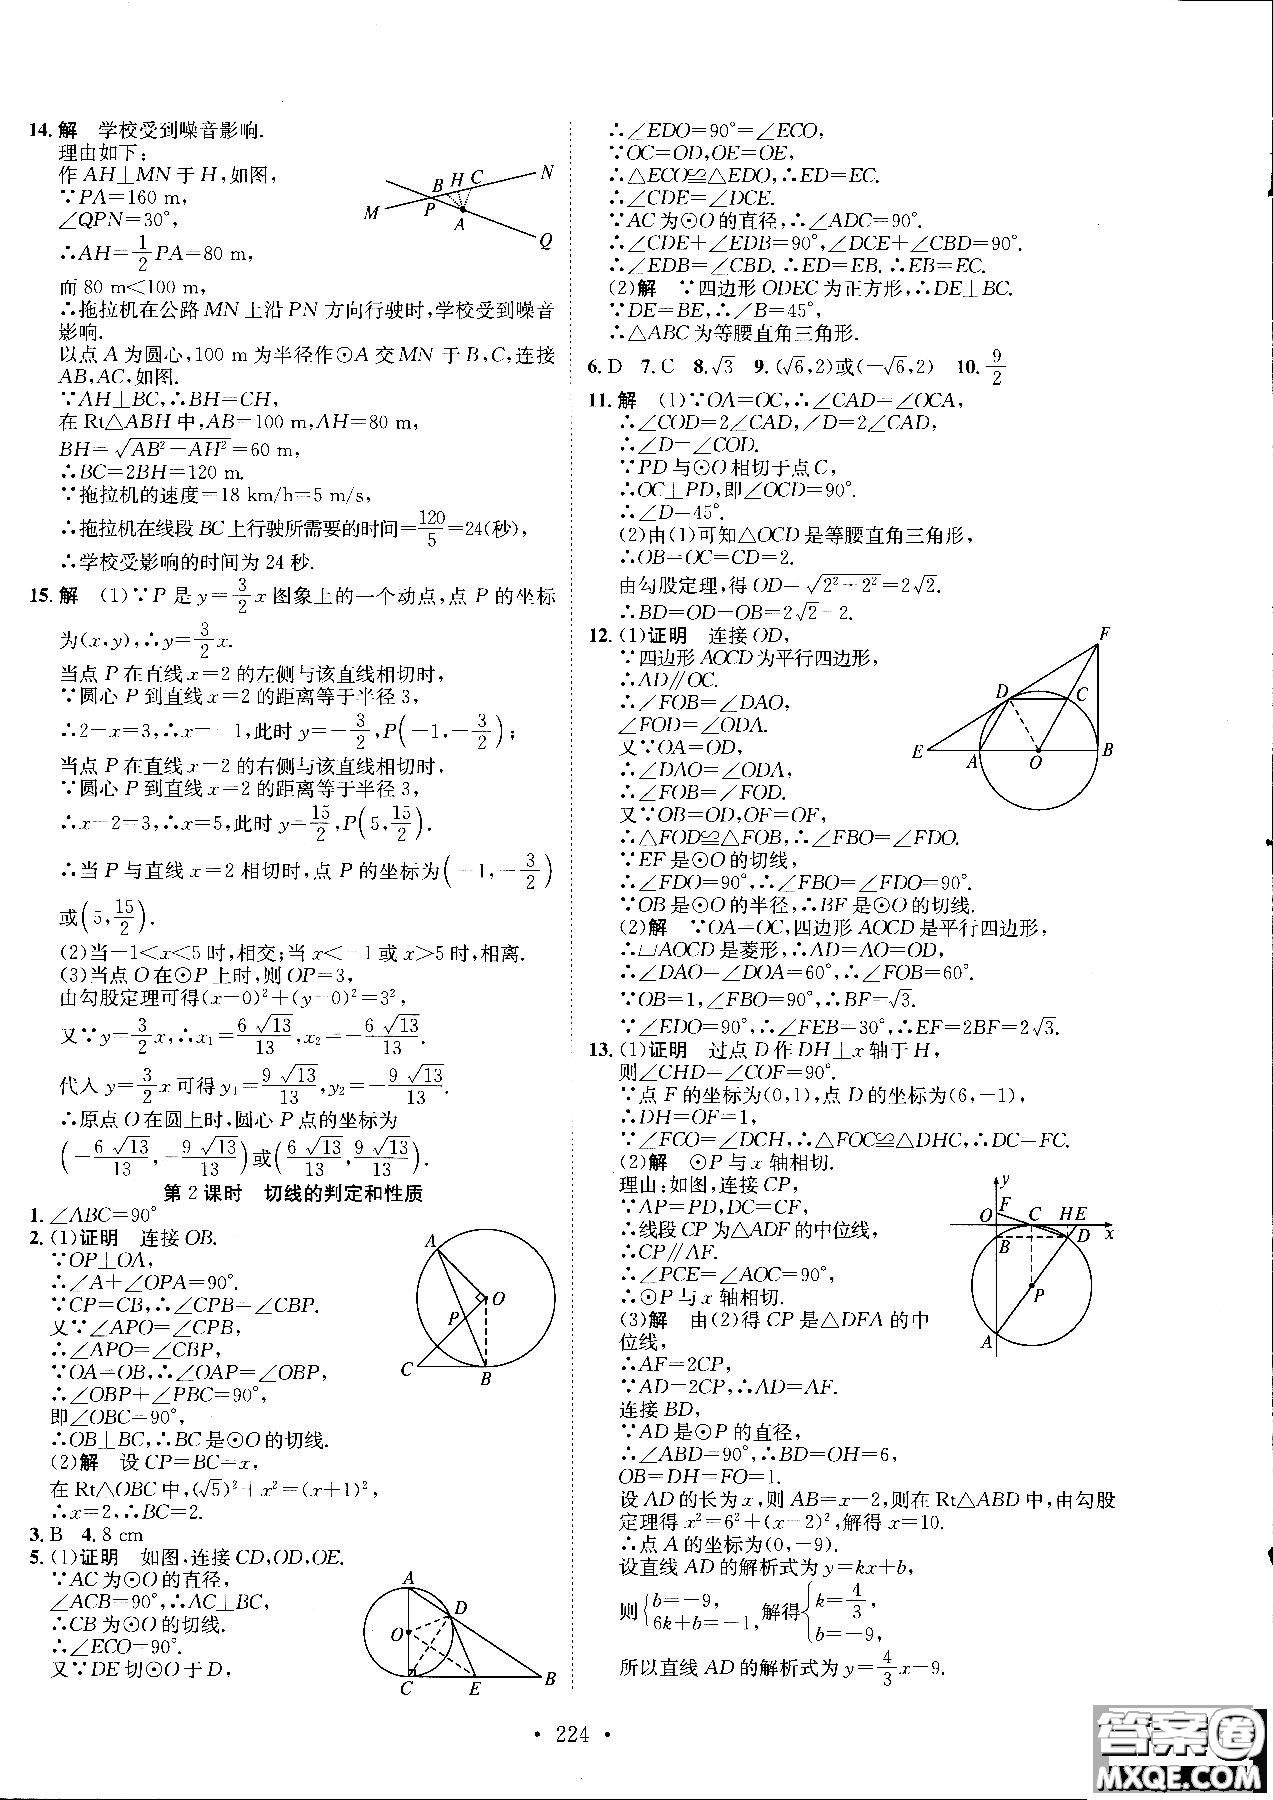 14.解 学校受到噪音影响.
理由如下:
作AH⊥MN于H,如图,
∵PA=160 m,
∠QPN=30°,
∴AH=1/2PA=80 m,
而80 m<100 m,
∴拖拉机在公路MN上沿PN方向行驶时,学校受到噪音
影响.
以点A为圆心,100 m为半径作⊙A交MN于B,C,连接
AB,AC,如图.
∵AH⊥BC,∴BH=CH,
在Rt△ABH中,AB=100 m,AH=80 m,
BH=√(AB²-AH²)=60 m,
∴BC=2BH=120 m.
∵拖拉机的速度=18 km/h=5 m/s,
∴拖拉机在线段BC上行驶所需要的时间=120/5=24(秒),
∴学校受影响的时间为24秒.
B H C N
M P A Q
15.解 (1)∵P是y=3/2x图象上的一个动点,点P的坐标
为(x,y),∴y=3/2x.
当点P在直线x=2的左侧与该直线相切时,
∵圆心P到直线x=2的距离等于半径3,
∴2-x=3,∴x=-1,此时y=-3/2,P(-1,-3/2);
当点P在直线x=2的右侧与该直线相切时,
∵圆心P到直线x=2的距离等于半径3,
∴x-2=3,∴x=5,此时y=15/2,P(5,15/2).
∴当P与直线x=2相切时,点P的坐标为(-1,-3/2)
或(5,15/2).
(2)当-1<x<5时,相交;当x<-1或x>5时,相离.
(3)当点O在⊙P上时,则OP=3,
由勾股定理可得(x-0)²+(y-0)²=3²,
又∵y=3/2x,∴x₁=6√13/13,x₂=-6√13/13.
代入y=3/2x可得y₁=9√13/13,y₂=-9√13/13.
∴原点O在圆上时,圆心P点的坐标为
(-6√13/13,-9√13/13)或(6√13/13,9√13/13).
第2课时 切线的判定和性质
1.∠ABC=90°
2.(1)证明 连接OB.
∵OP⊥OA,
∴∠A+∠OPA=90°.
∵CP=CB,∴∠CPB=∠CBP.
又∵∠APO=∠CPB,
∴∠APO=∠CBP,
∵OA=OB,∴∠OAP=∠OBP,
∴∠OBP+∠PBC=90°,
即∠OBC=90°,
∴OB⊥BC,∴BC是⊙O的切线.
(2)解 设CP=BC=x,
在Rt△OBC中,(√5)²+x²=(x+1)²,
∴x=2,∴BC=2.
A O P C B
3.B 4.8 cm
5.(1)证明 如图,连接CD,OD,OE.
∵AC为⊙O的直径,
∠ACB=90°,∴AC⊥BC,
∴CB为⊙O的切线.
∴∠ECO=90°.
又∵DE切⊙O于D,
A D O C E B
∴∠EDO=90°=∠ECO,
∵OC=OD,OE=OE,
∴△ECO≌△EDO,∴ED=EC.
∴∠CDE=∠DCE.
∵AC为⊙O的直径,∴∠ADC=90°.
∴∠CDE+∠EDB=90°,∠DCE+∠CBD=90°.
∴∠EDB=∠CBD.∴ED=EB.∴EB=EC.
(2)解 ∵四边形ODEC为正方形,∴DE⊥BC.
∵DE=BE,∴∠B=45°,
∴△ABC为等腰直角三角形.
6.D 7.C 8.√3 9.(√6,2)或(-√6,2) 10.9/2
11.解 (1)∵OA=OC,∴∠CAD=∠OCA,
∴∠COD=2∠CAD,∠D=2∠CAD,
∴∠D=∠COD.
∵PD与⊙O相切于点C,
∴OC⊥PD,即∠OCD=90°.
∴∠D=45°.
(2)由(1)可知△OCD是等腰直角三角形,
∴OB=OC=CD=2.
由勾股定理,得OD=√(2²+2²)=2√2.
∴BD=OD-OB=2√2-2.
12.(1)证明 连接OD,
∵四边形AOCD为平行四边形,
∴AD∥OC.
∴∠FOB=∠DAO,
∠FOD=∠ODA.
又∵OA=OD,
∴∠DAO=∠ODA,
∴∠FOB=∠FOD.
又∵OB=OD,OF=OF,
∴△FOD≌△FOB,∴∠FBO=∠FDO.
∵EF是⊙O的切线,
∴∠FDO=90°,∴∠FBO=∠FDO=90°.
∵OB是⊙O的半径,∴BF是⊙O的切线.
(2)解 ∵OA=OC,四边形AOCD是平行四边形,
∴▱AOCD是菱形,∴AD=AO=OD,
∴∠DAO=∠DOA=60°,∴∠FOB=60°.
∵OB=1,∠FBO=90°,∴BF=√3.
∵∠EDO=90°,∴∠FEB=30°,∴EF=2BF=2√3.
F D C E A O B
13.(1)证明 过点D作DH⊥x轴于H,
则∠CHD=∠COF=90°.
∵点F的坐标为(0,1),点D的坐标为(6,-1),
∴DH=OF=1,
∵∠FCO=∠DCH,∴△FOC≌△DHC,∴DC=FC.
(2)解 ⊙P与x轴相切.
理由:如图,连接CP,
∵AP=PD,DC=CF,
∴线段CP为△ADF的中位线,
∴CP∥AF.
∴∠PCE=∠AOC=90°,
∴⊙P与x轴相切.
(3)解 由(2)得CP是△DFA的中
位线,
∴AF=2CP,
∵AD=2CP,∴AD=AF.
连接BD,
∵AD是⊙P的直径,
∴∠ABD=90°,∴BD=OH=6,
OB=DH=FO=1.
设AD的长为x,则AB=x-2,则在Rt△ABD中,由勾股
定理得x²=6²+(x-2)²,解得x=10.
∴点A的坐标为(0,-9).
设直线AD的解析式为y=kx+b,
则{b=-9, 6k+b=-1, 解得{k=4/3, b=-9,
所以直线AD的解析式为y=4/3x-9.
y F O C H E x
B D P A
• 224 •
答案圈
MXQE.COM